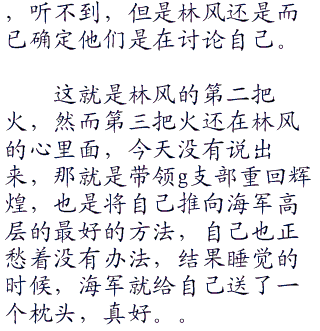 ，听不到，但是林风还是而
已确定他们是在讨论自己。
这就是林风的第二把
火，然而第三把火还在林风
的心里面，今天没有说出
来，那就是带领g支部重回辉
煌，也是将自己推向海军高
层的最好的方法，自己也正
愁着没有办法，结果睡觉的
时候，海军就给自己送了一
个枕头，真好。。